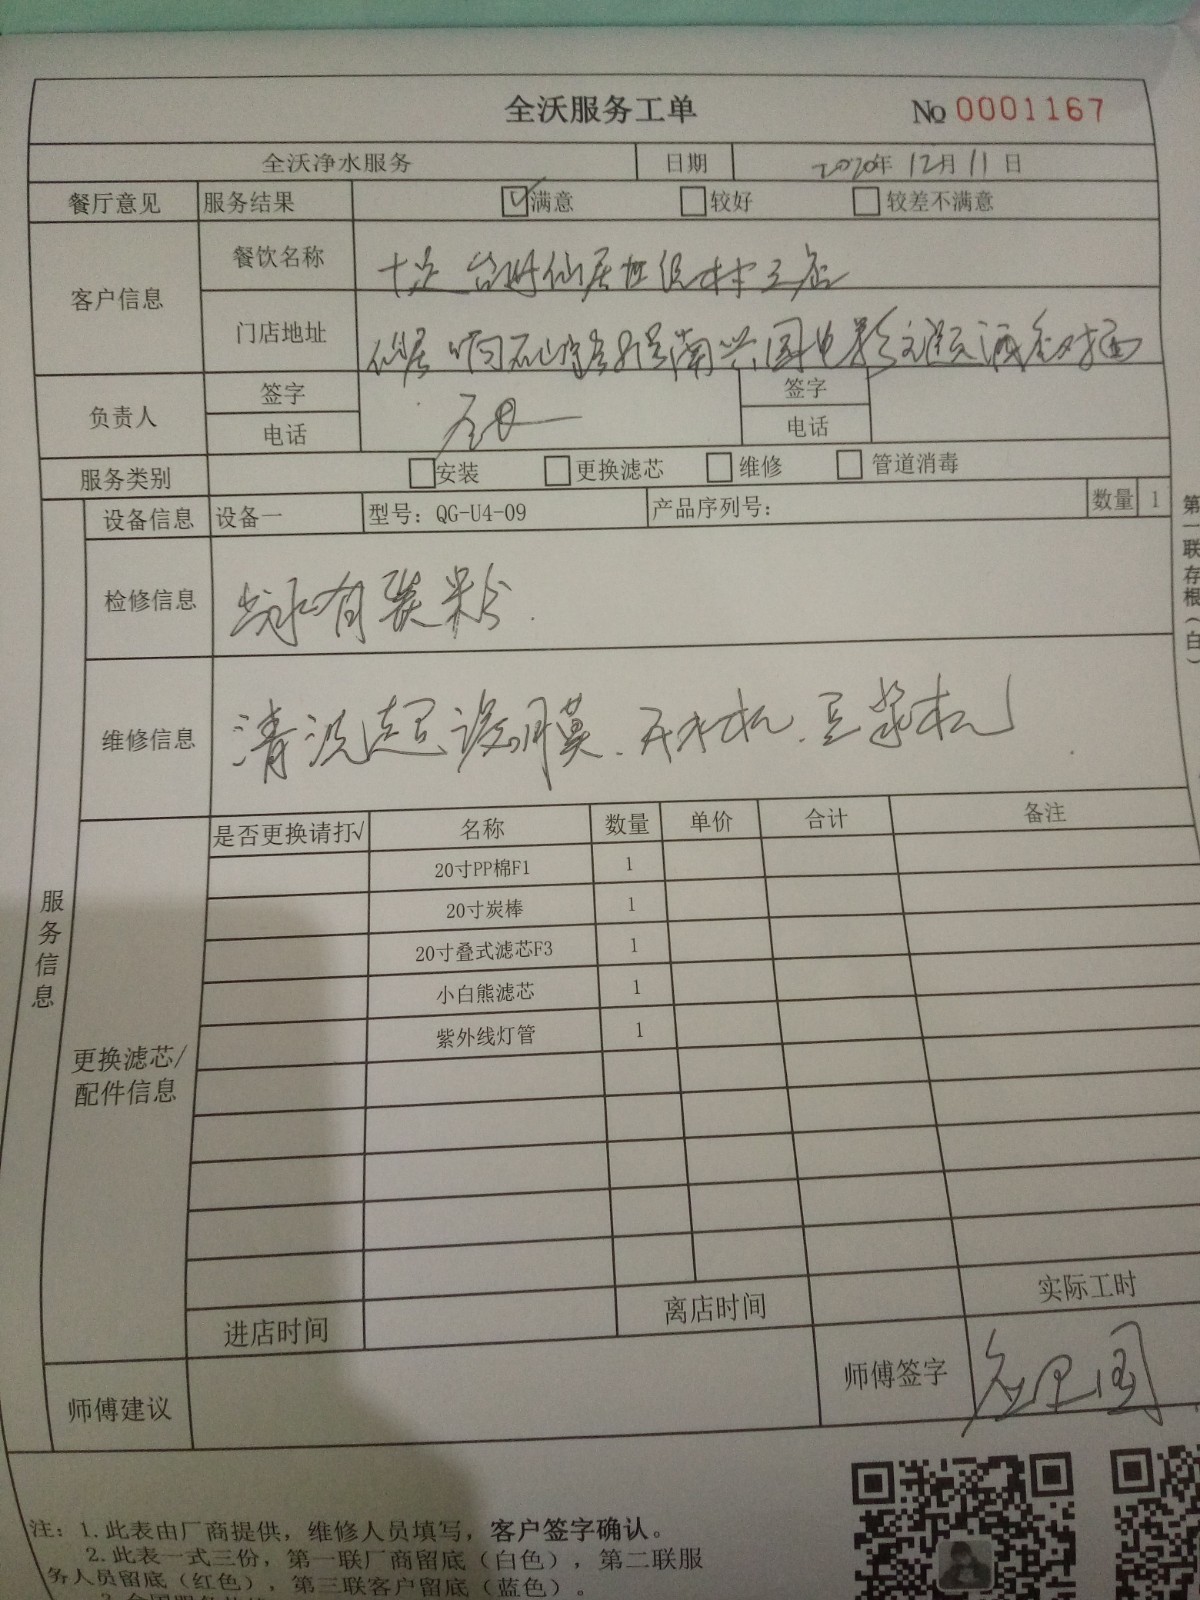 全沃服务工单 № 0001167
全沃净水服务 日期 2020年 12月 11日
餐厅意见 服务结果 ☑满意 □较好 □较差不满意
客户信息 餐饮名称 十足 台州仙居
门店地址 仙居
负责人 签字 签字
电话 电话
服务类别 □安装 □更换滤芯 □维修 □管道消毒
服务信息
设备信息 设备一 型号：QG-U4-09 产品序列号： 数量 1
检修信息 有
维修信息 清洗超滤膜、开水机、豆浆机
更换滤芯/配件信息
是否更换请打√ 名称 数量 单价 合计 备注
20寸PP棉F1 1
20寸炭棒 1
20寸叠式滤芯F3 1
小白熊滤芯 1
紫外线灯管 1
进店时间 离店时间 实际工时
师傅建议 师傅签字
第一联存根（白）
注：1.此表由厂商提供，维修人员填写，客户签字确认。
2.此表一式三份，第一联厂商留底（白色），第二联服
务人员留底（红色），第三联客户留底（蓝色）。